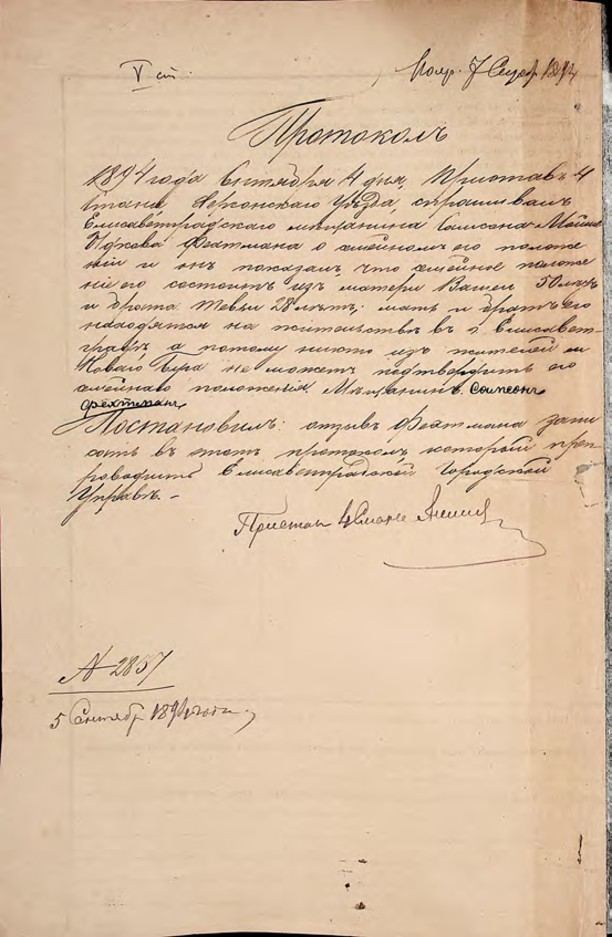 V ст.
Полу. 7 Сент 1894
Протоколъ
1894 года Сентября 4 дня, Приставъ 4
стана Херсонскаго Уѣзда, спрашивалъ
Елисаветградскаго мѣщанина Самсона
Фехтмана о семейномъ его положе
ніи и онъ показалъ, что семейное положе
ніе его состоитъ изъ матери 50 лѣтъ
и брата Тевьи 28 лѣтъ; мать и братъ его
находятся на жительствѣ въ г. Елисавет-
градѣ, а потому никто изъ жителей м
Новаго Буга не можетъ подтвердить его
семейнаго положенія. Мѣщанинъ Самсонъ
Фехтманъ
Постановилъ: отзывъ Фехтмана запи
сать въ этотъ протоколъ который преп-
роводить Елисаветградской Городской
Управѣ. –
Приставъ 4 Стана
N 2857
5 Сентябр 1894 года